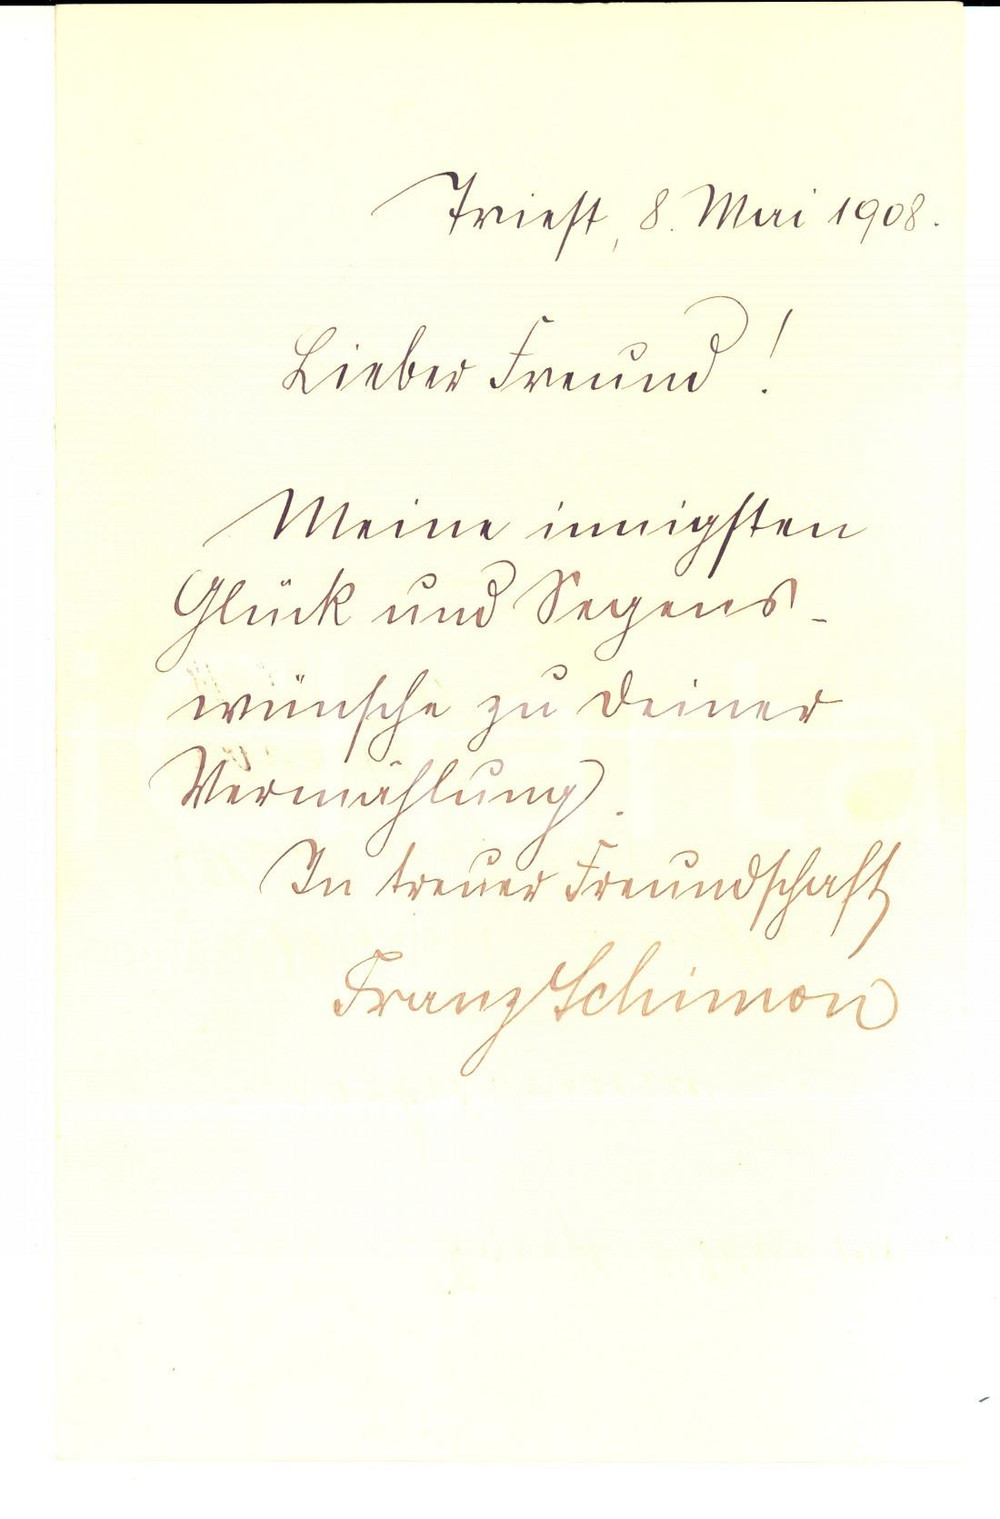 Triest, 8. Mai 1908.
Lieber Freund!
Meine innigsten
Glück und Segens-
wünsche zu deiner
Vermählung.
In treuer Freundschaft
Franz Schimon